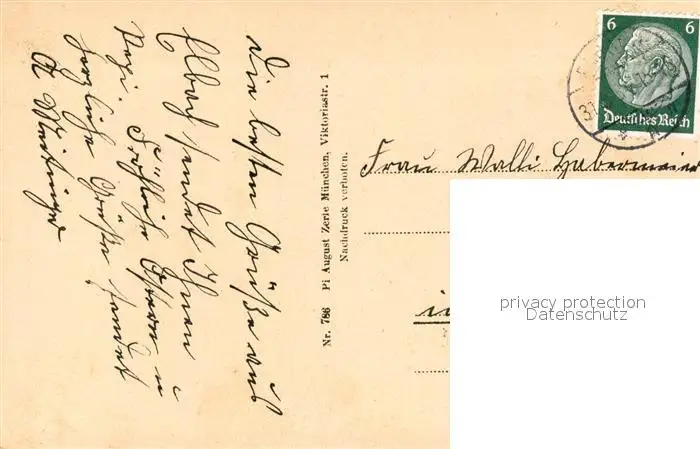 Die besten Grüße aus
Elbach sendet Ihnen
Resi. Fröhliche Ostern u
herzliche Grüße sendet
Nr. 786 Pi August Zerle München, Viktoriastr. 1
Nachdruck verboten.
6 6
Deutsches Reich
31
Frau Walli Habermeier
privacy protection
Datenschutz